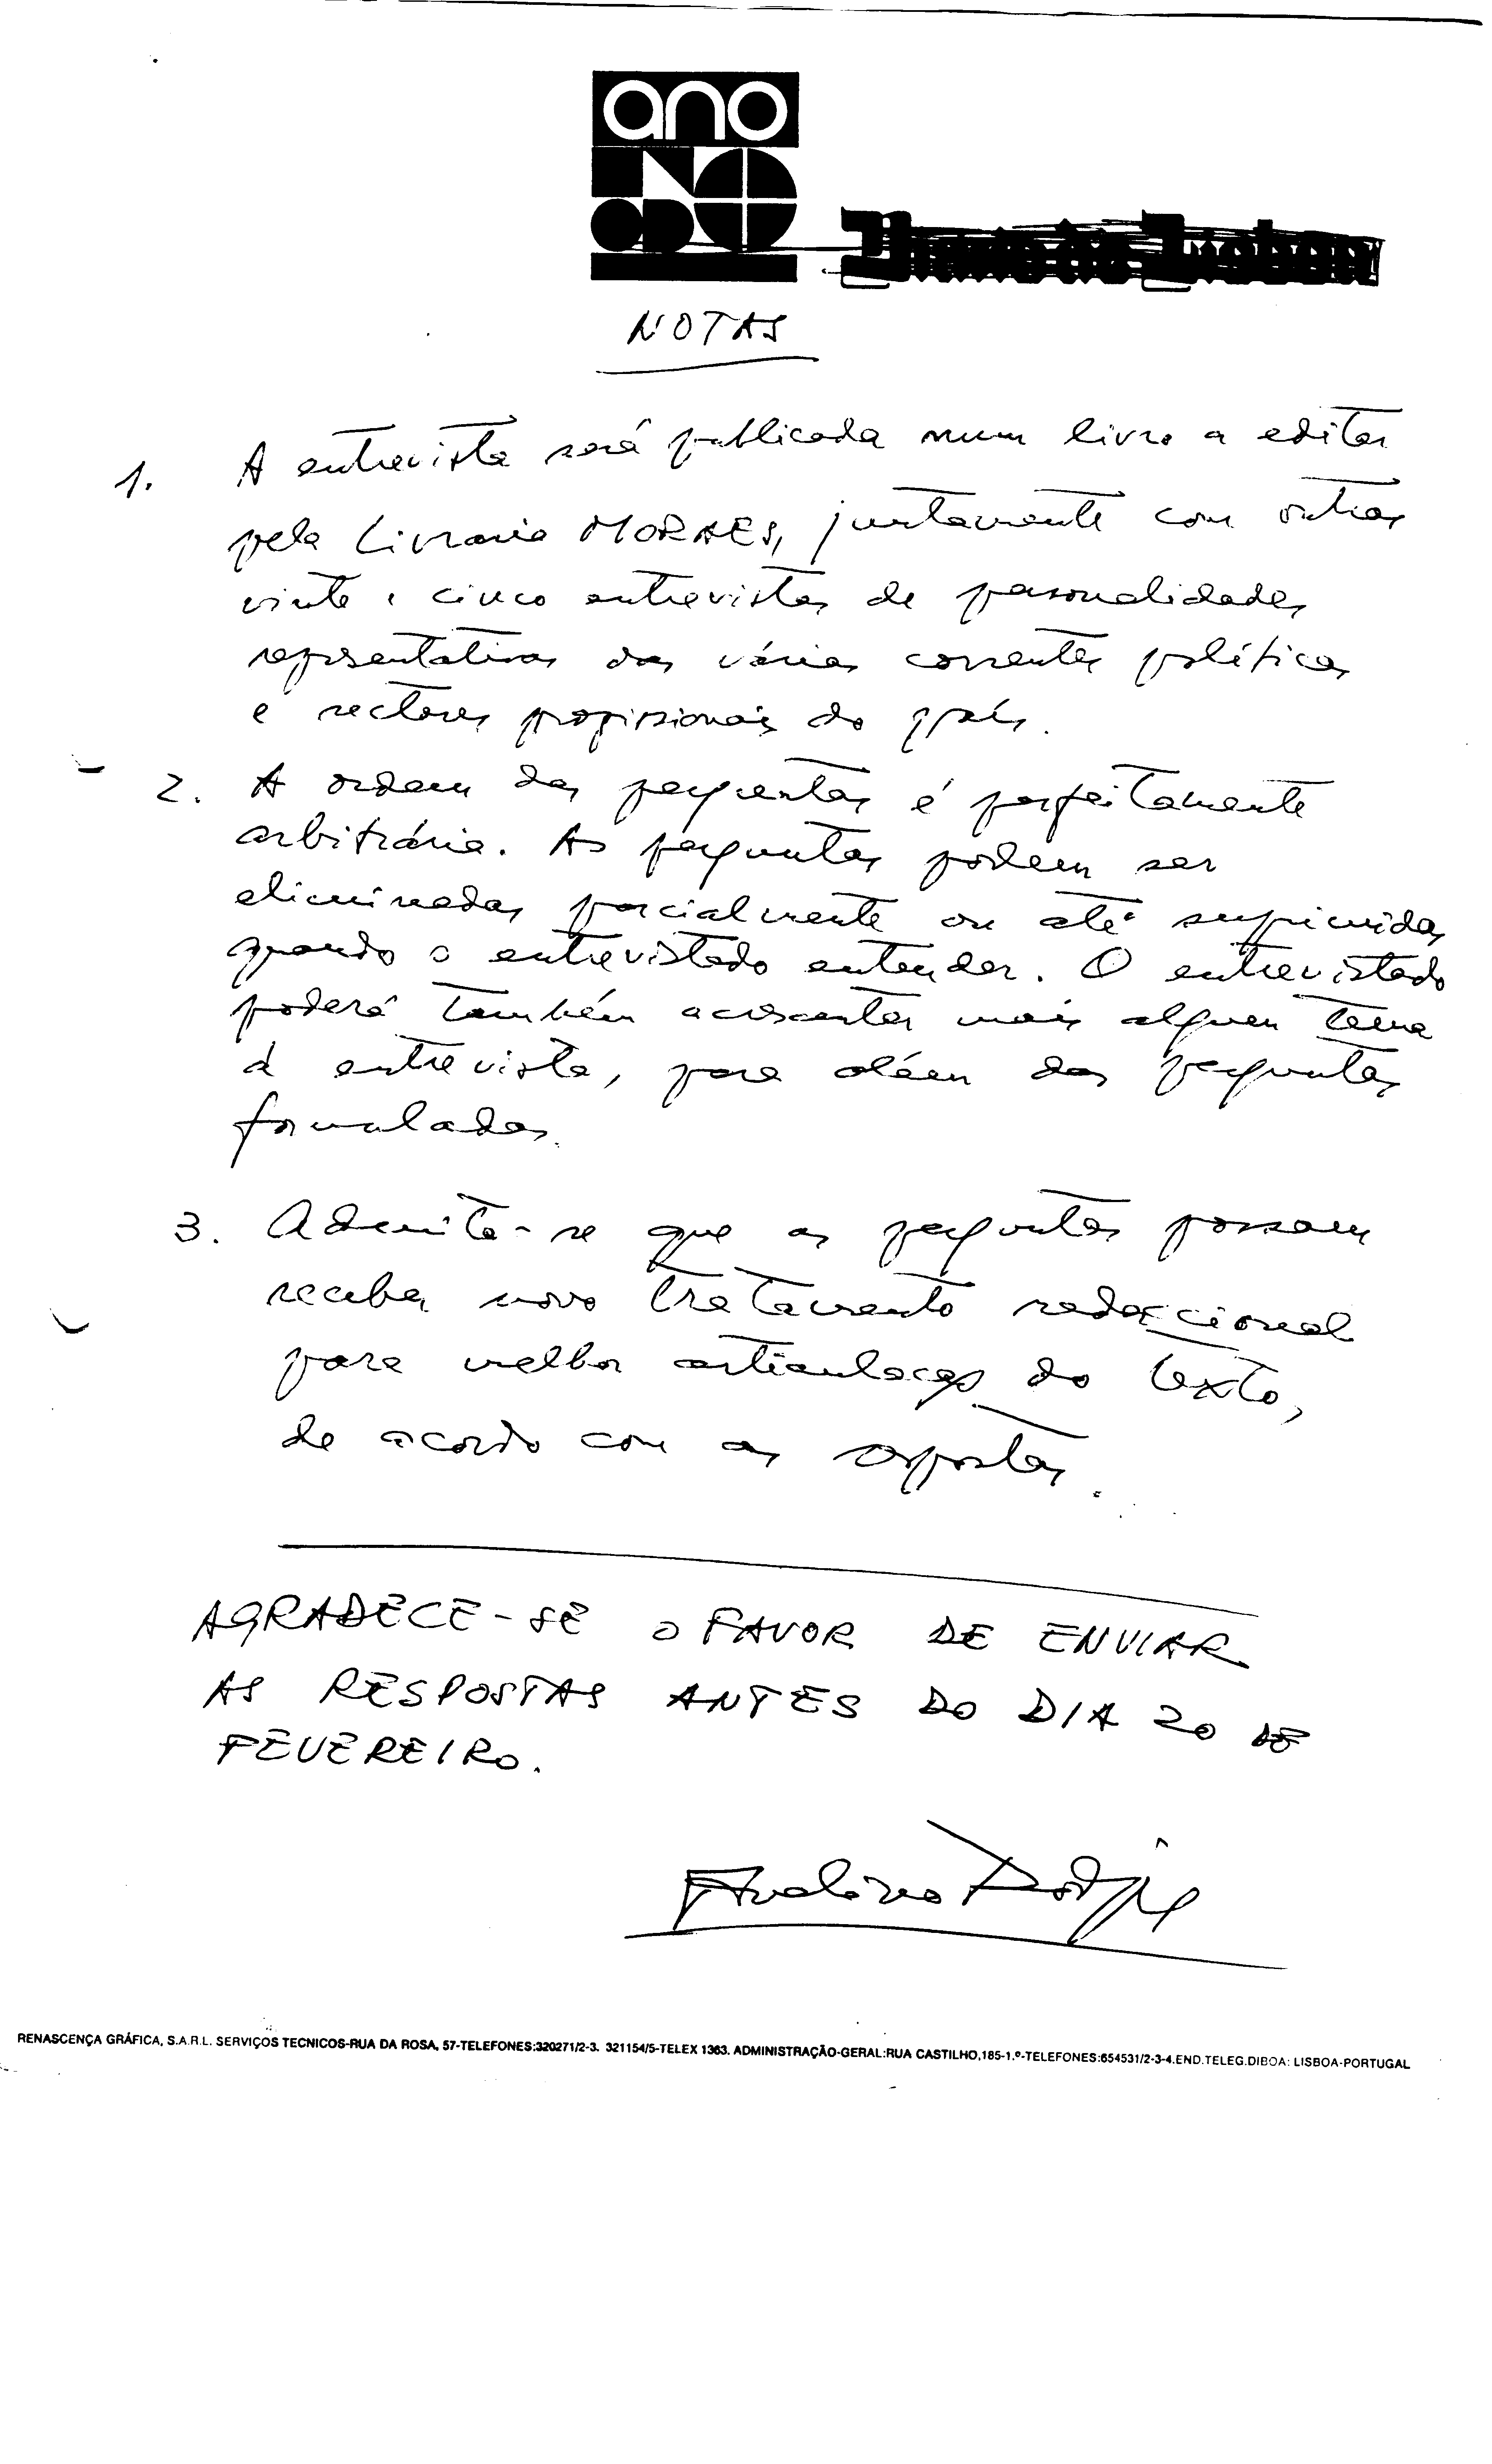 ano
NOVO
Diario de Lisboa
NOTAS
1. A entrevista será publicada num livro a editar
pela Livraria MORAES, juntamente com outras
vinte e cinco entrevistas de personalidades
representativas das várias correntes políticas
e sectores profissionais do país.
2. A ordem das perguntas é perfeitamente
arbitrária. As perguntas podem ser
eliminadas parcialmente ou até suprimidas
quando o entrevistado entender. O entrevistado
poderá também acrescentar mais algum tema
à entrevista, para além das perguntas
formuladas.
3. Admite-se que as perguntas possam
receber novo tratamento redaccional
para melhor articulação do texto,
de acordo com as respostas.
AGRADECE-SE O FAVOR DE ENVIAR
AS RESPOSTAS ANTES DO DIA 20 DE
FEVEREIRO.
RENASCENÇA GRÁFICA, S.A.R.L. SERVIÇOS TECNICOS-RUA DA ROSA, 57-TELEFONES:320271/2-3. 321154/5-TELEX 1363. ADMINISTRAÇÃO-GERAL:RUA CASTILHO,185-1.º-TELEFONES:654531/2-3-4.END.TELEG.DIBOA: LISBOA-PORTUGAL